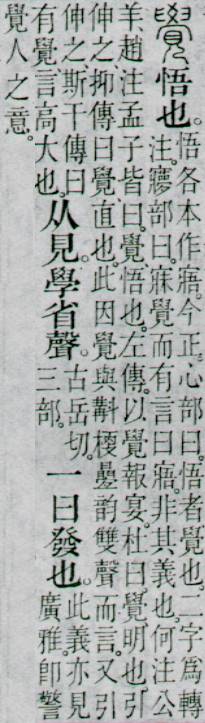 覺悟也。悟各本作寤。今正。心部曰。悟者。覺也。二字爲轉
注。㝱部曰。寐覺而有言曰寤。非其義也。何注公
羊、趙注孟子皆曰。覺、悟也。左傳。以覺報宴。杜曰。覺、明也。引
伸之。抑傳曰。覺、直也。此因覺與斠梗曡韵雙聲而言。又引
伸之。斯干傳曰
有覺、言高大也。
从見。學省聲。古岳切。
三部。
一曰發也。此義亦見
廣雅。卽警
覺人之意。